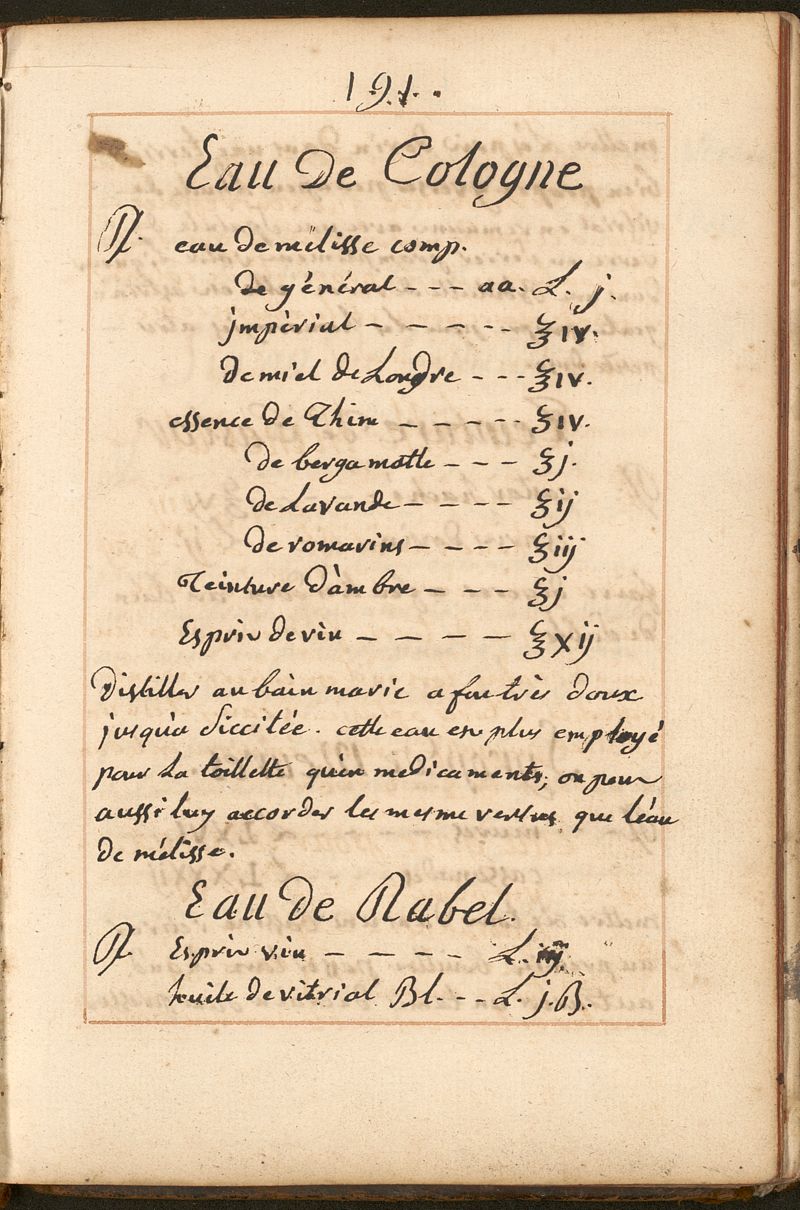 191.
Eau De Cologne
℞. eau De mélisse comp.
de général - - - aa. L. j.
jmpérial - - - - - ℥ iv.
De miel de Londre - - - ℥ iv.
essence de Thim - - - - - ℥ iv.
de bergamotte - - - ℥ j.
de Lavande - - - - ℥ ij
de romarins - - - - ℥ iij
Teinture D'ambre - - - ℥ j
Esprit de vin - - - - ℥ xij
Distiller au bain marie a feu très doux
jusqu'a Siccitée. cette eau est plus employé
pour La toillette qu'en medicaments, on peut
aussi luy accorder les mesme vertus que l'éau
de mélisse.
Eau de Rabel.
℞ Esprit vin - - - - L. iij
huile de vitrial Bl. - - L. j. ß.